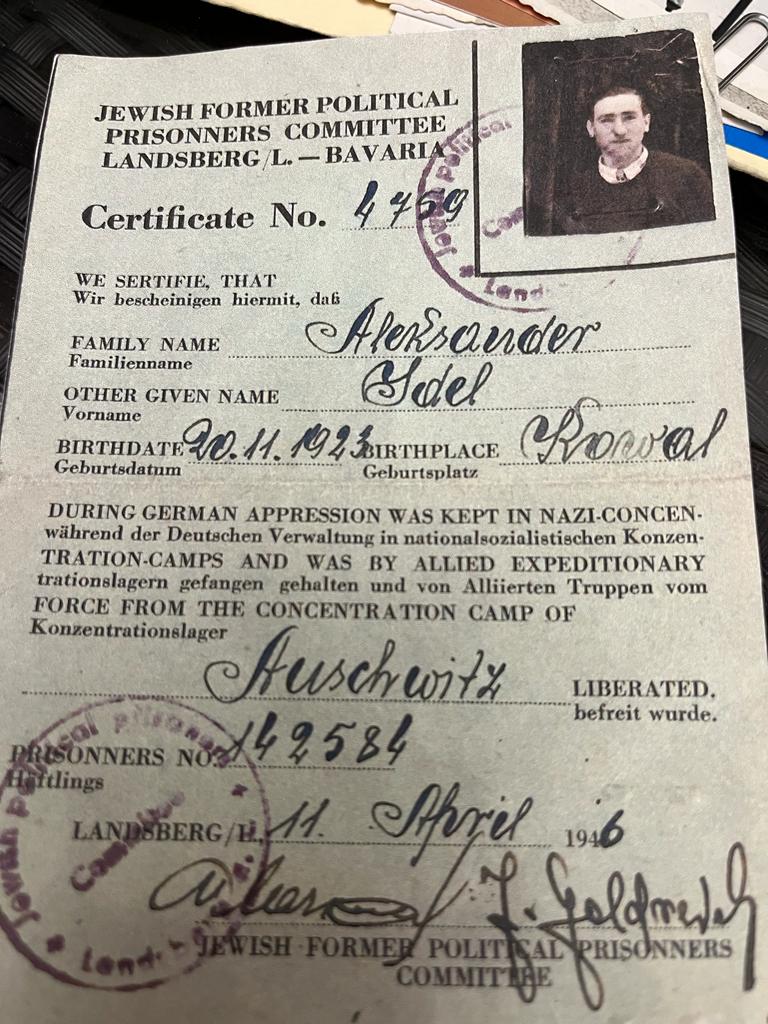 JEWISH FORMER POLITICAL
PRISONNERS COMMITTEE
LANDSBERG/L. — BAVARIA
Certificate No. 4759
WE SERTIFIE, THAT
Wir bescheinigen hiermit, daß
FAMILY NAME Aleksander
Familienname
OTHER GIVEN NAME Idel
Vorname
BIRTHDATE 20.11.1923 BIRTHPLACE Kowal
Geburtsdatum Geburtsplatz
DURING GERMAN APPRESSION WAS KEPT IN NAZI-CONCEN-
während der Deutschen Verwaltung in nationalsozialistischen Konzen-
TRATION-CAMPS AND WAS BY ALLIED EXPEDITIONARY
trationslagern gefangen gehalten und von Alliierten Truppen vom
FORCE FROM THE CONCENTRATION CAMP OF
Konzentrationslager
Auschwitz LIBERATED.
befreit wurde.
PRISONNERS NO. 142584
Häftlings
LANDSBERG/L. 11. April 1946
JEWISH FORMER POLITICAL PRISONNERS
COMMITTEE
Jewish Political Prisoners
Committee